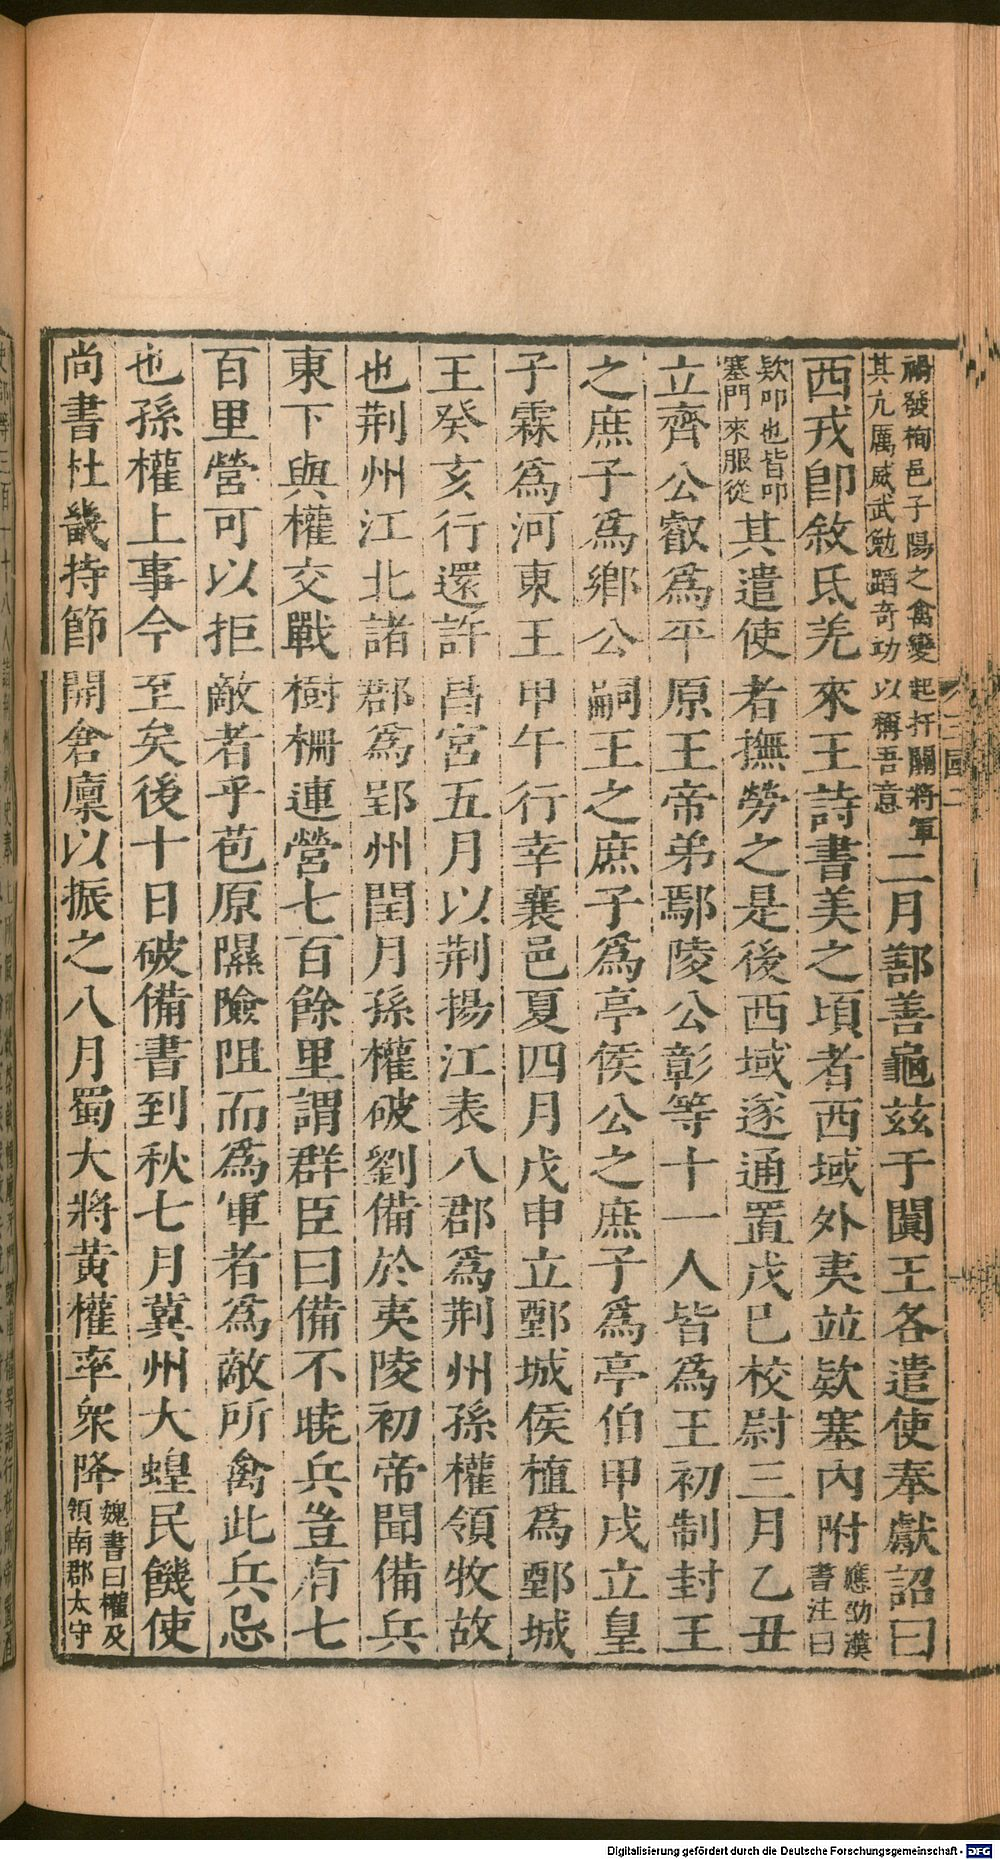 禍發栒邑子陽之禽變起扞關將軍
其亢厲威武勉蹈奇功以稱吾意
二月鄯善龜茲于闐王各遣使奉獻詔曰
西戎卽敘氐羌來王詩書美之頃者西域外夷並欵塞內附
應劭漢
書注曰
欵叩也皆叩
塞門來服從
其遣使者撫勞之是後西域遂通置戊巳校尉三月乙丑
立齊公叡爲平原王帝弟鄢陵公彰等十一人皆爲王初制封王
之庶子爲鄉公嗣王之庶子爲亭侯公之庶子爲亭伯甲戌立皇
子霖爲河東王甲午行幸襄邑夏四月戊申立鄄城侯植爲鄄城
王癸亥行還許昌宮五月以荆揚江表八郡爲荆州孫權領牧故
也荆州江北諸郡爲郢州閏月孫權破劉備於夷陵初帝聞備兵
東下與權交戰樹柵連營七百餘里謂群臣曰備不曉兵豈有七
百里營可以拒敵者乎苞原隰險阻而爲軍者爲敵所禽此兵忌
也孫權上事今至矣後十日破備書到秋七月冀州大蝗民饑使
尚書杜畿持節開倉廩以振之八月蜀大將黃權率衆降
魏書曰權及
領南郡太守
三國二
Digitalisierung gefördert durch die Deutsche Forschungsgemeinschaft - DFG